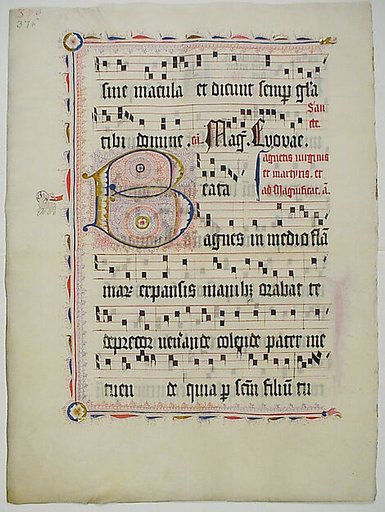 376
sine macula et dicunt semp gr̄a
San
cte.
tibi domine. Mag̃. Evovae.
agnetis uirginis
et martyris. et
ad Magnificat. ā.
Beata
agnes in medio flā
mar expansis manibȝ orabat te
deprecor uen̄ande colende pater me
tuen de quia p sc̄m filiū tu